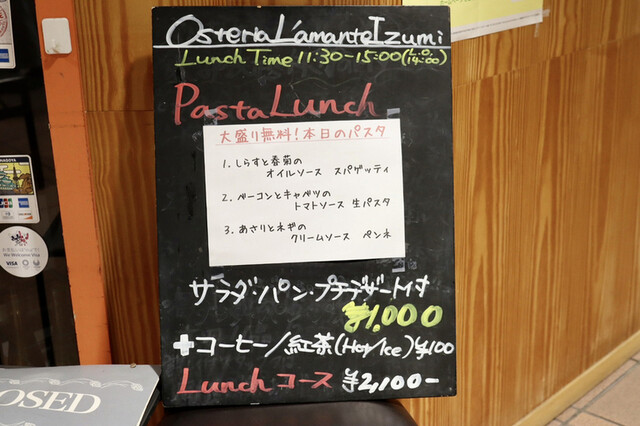 Osteria L'amante Izumi
Lunch Time 11:30-15:00(L.O. 14:00)
Pasta Lunch
大盛り無料!本日のパスタ
1. しらすと春菊の
オイルソース スパゲッティ
2. ベーコンとキャベツの
トマトソース 生パスタ
3. あさりとネギの
クリームソース ペンネ
サラダ・パン・プチデザート付
¥1,000
+コーヒー/紅茶(Hot/Ice)¥100
Lunchコース ¥2,100-
LOSED
NAGOYA
JCB
We Welcome Visa
VISA